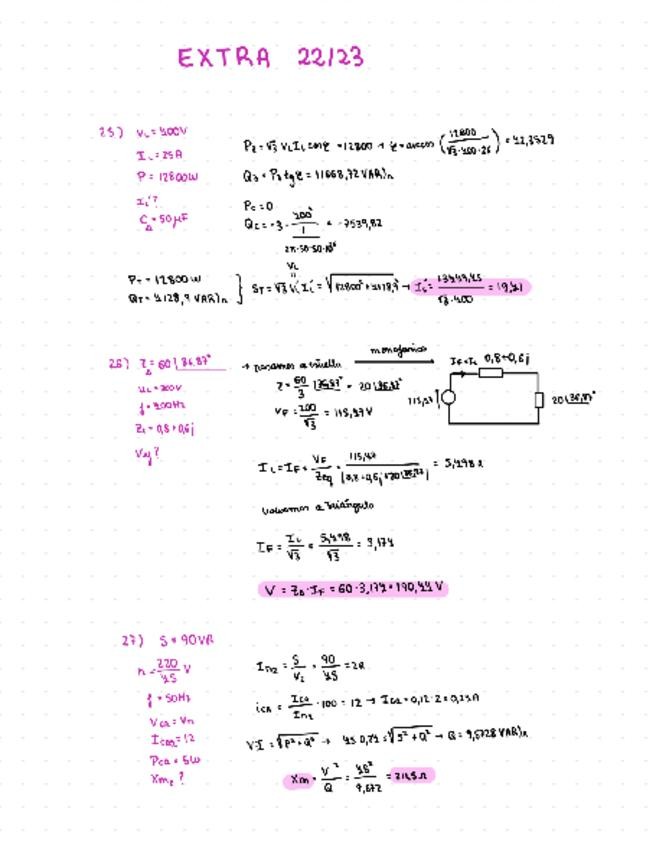 EXTRA 22/23
25) VL = 400V
IL = 25A
P = 12800W
IL'?
CΔ = 50 μF
P3 = √3 VL IL cosφ = 12800 → φ = arccos (12800 / √3·400·25) = 42,3529
Q3 = P3 tgφ = 11668,72 VAR)n
PC = 0
QC = -3 · 400² / (1 / 2π·50·50·10⁻⁶) = -7539,82
PT = 12800W
QT = 4128,9 VAR)n
ST = √3 VL' IL' = √12800² + 4128,9² → IL' = 13449,45 / √3·400 = 19,41
VL
26) ZΔ = 60 |36,87°
UL = 200V
f = 400Hz
ZL = 0,8 + 0,6j
→ pasamos a estrella
monofásico
Z = 60/3 |36,87° = 20 |36,87°
VF = 200/√3 = 115,47V
IF = IL 0,8+0,6j
115,47
20|36,87°
IL = IF = VF / Zeq = 115,47 / |0,8+0,6j+20|36,87| = 5,498A
volvemos a triángulo
IF = IL/√3 = 5,498/√3 = 3,174
V = ZΔ · IF = 60 · 3,174 = 190,44 V
27) S = 90VA
n = 220/45 V
f = 50Hz
Pca = 5W
Xm2 ?
In2 = S/V2 = 90/45 = 2A
ica = Ica/In2 · 100 = 12 → Ica = 0,12 · 2 = 0,24A
V·I = √P² + Q² → 45·0,24 = √5² + Q² → Q = 9,5728 VAR)n
Xm = V²/Q = 45²/9,572 = 211,5 Ω